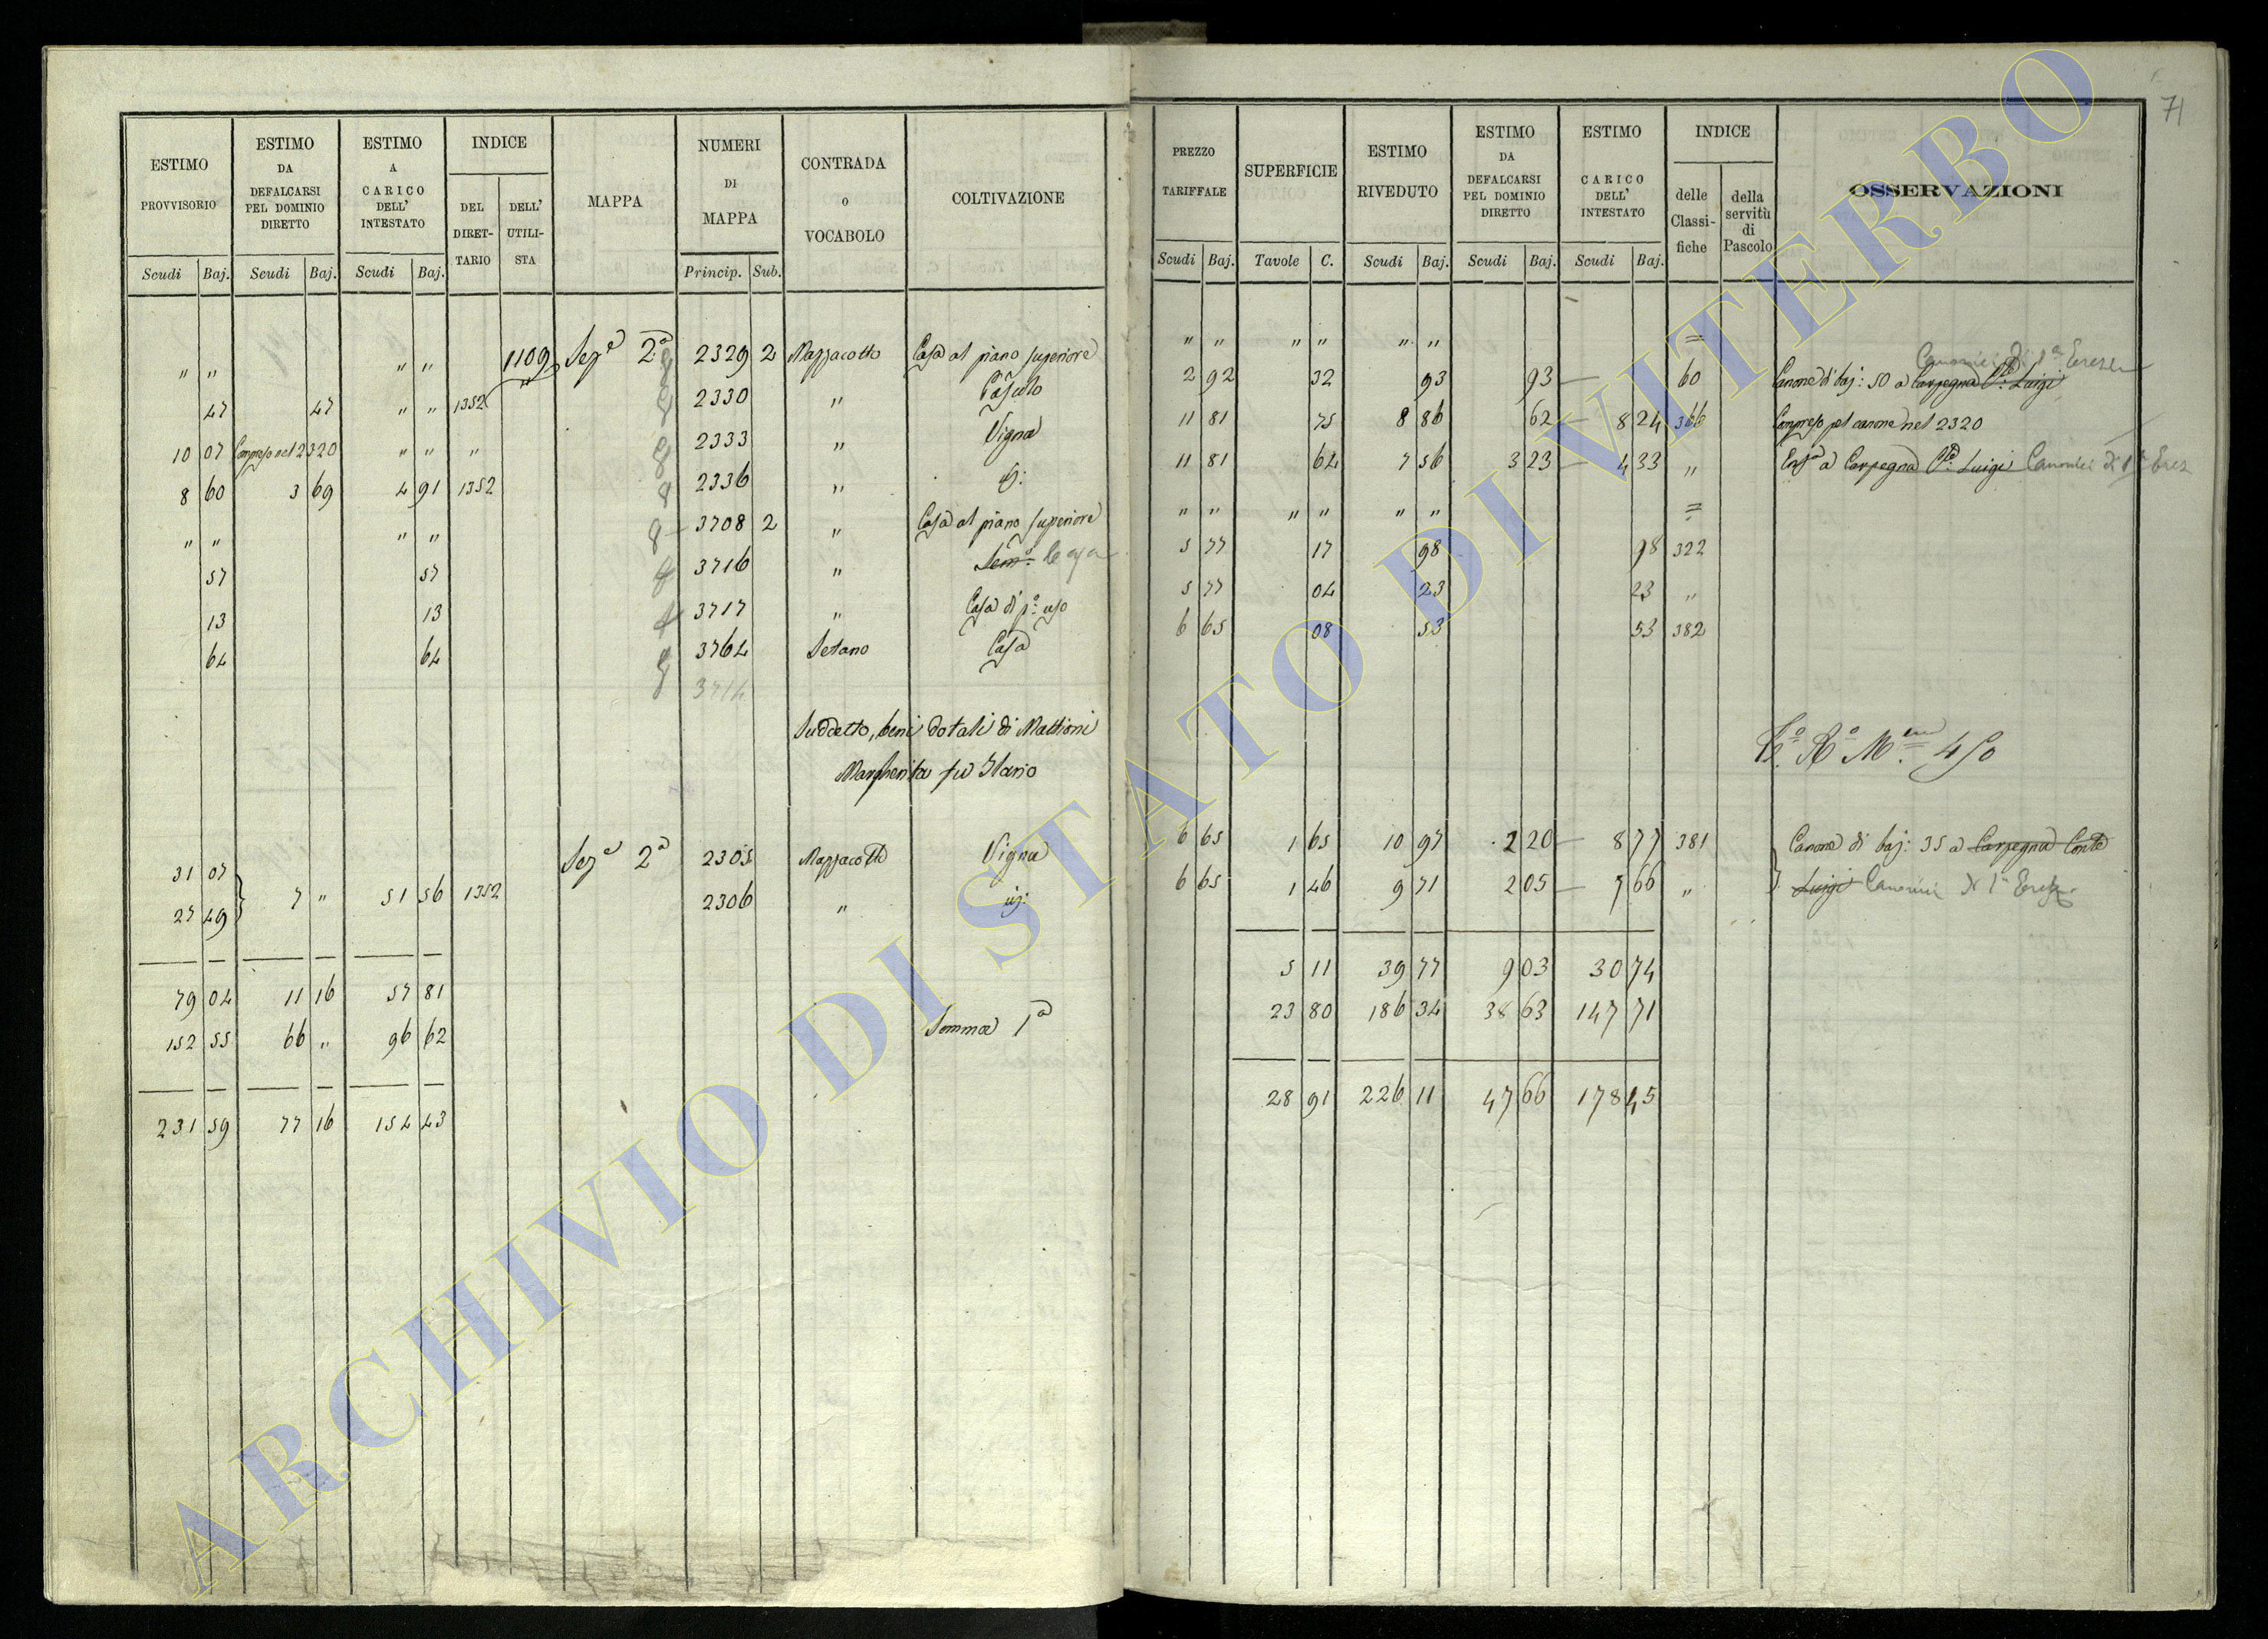 71
ESTIMO PROVVISORIO
ESTIMO DA DEFALCARSI PEL DOMINIO DIRETTO
ESTIMO A CARICO DELL' INTESTATO
INDICE
DEL DIRETTARIO
DELL' UTILISTA
MAPPA
NUMERI DI MAPPA
CONTRADA o VOCABOLO
COLTIVAZIONE
Scudi Baj. Scudi Baj. Scudi Baj. Princip. Sub.
PREZZO TARIFFALE
SUPERFICIE
ESTIMO RIVEDUTO
ESTIMO DA DEFALCARSI PEL DOMINIO DIRETTO
ESTIMO A CARICO DELL' INTESTATO
INDICE
delle Classifiche
della servitù di Pascolo
OSSERVAZIONI
Scudi Baj. Tavole C. Scudi Baj. Scudi Baj. Scudi Baj.
" " " " 1109 Sez.e 2a 2329 2 Mazzacotto Casa al piano superiore " " " " " " =
Canonici di 1a Erez
47 47 " " 1352 " 2330 " Casaleo 2 92 32 93 93 — 60 Canone di baj: 50 a Carpegna Cte Luigi
10 07 Compreso nel 2320 " " " 2333 " Vigna 11 81 75 8 86 62 — 8 24 366 Compreso pel canone nel 2320
8 60 3 69 4 91 1352 2336 " 11 81 64 7 56 3 23 — 4 33 " a Carpegna Cte Luigi Canonici di 1a Erez
" " " " 3708 2 " Casa al piano superiore " " " " " " =
57 57 3716 " Sem:o 5 77 17 98 98 322
13 13 3717 " Casa di p:o uso 5 77 04 23 23 "
64 64 3764 Setano Casa 6 65 08 53 53 382
3714
Suddetto, beni dotali di Mattioni
Margherita fu Ilario
31 07 Sez.e 2a 2305 Mazzacotto Vigna 6 65 1 65 10 97 2 20 — 8 77 381 Canone di baj: 35 a Carpegna Conte
27 49 7 " 51 56 1352 2306 " 6 65 1 46 9 71 2 05 — 7 66 " Luigi Canonici di 1a Erez
79 04 11 16 57 81 5 11 39 77 9 03 30 74
152 55 66 " 96 62 Somma 1a 23 80 186 34 38 63 147 71
231 59 77 16 154 43 28 91 226 11 47 66 178 45
ARCHIVIO DI STATO DI VITERBO